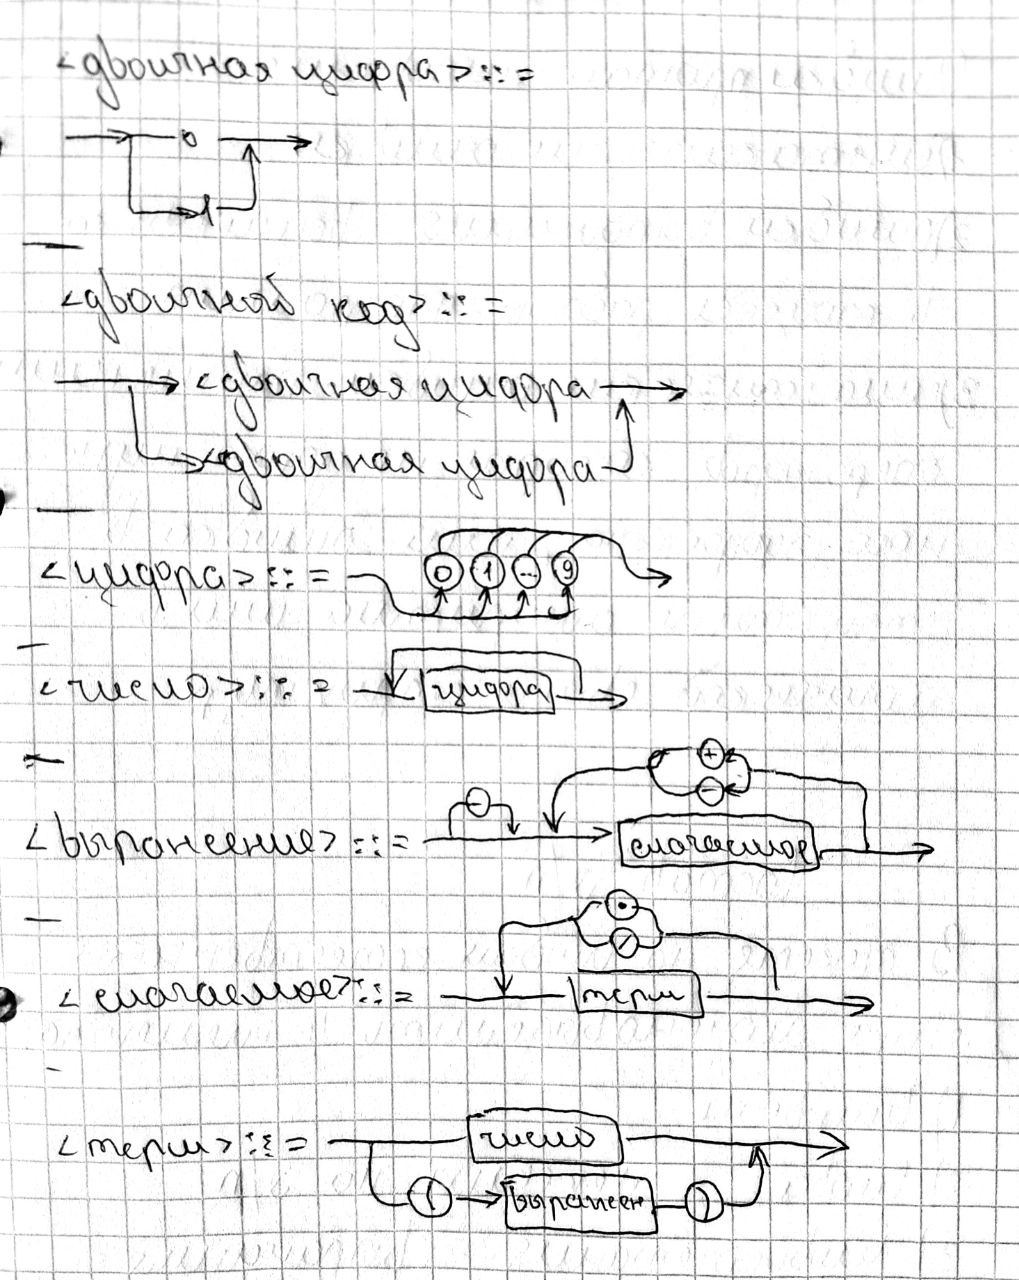 <двоичная цифра>::=
0
1
<двоичной код>::=
<двоичная цифра
<двоичная цифра
<цифра>::= 0 1 ... 9
<число>::= цифра
+
-
-
<выражеение>::= слагаемое
·
/
<слагаемое>::= терм
<терм>::= число
( выражен )